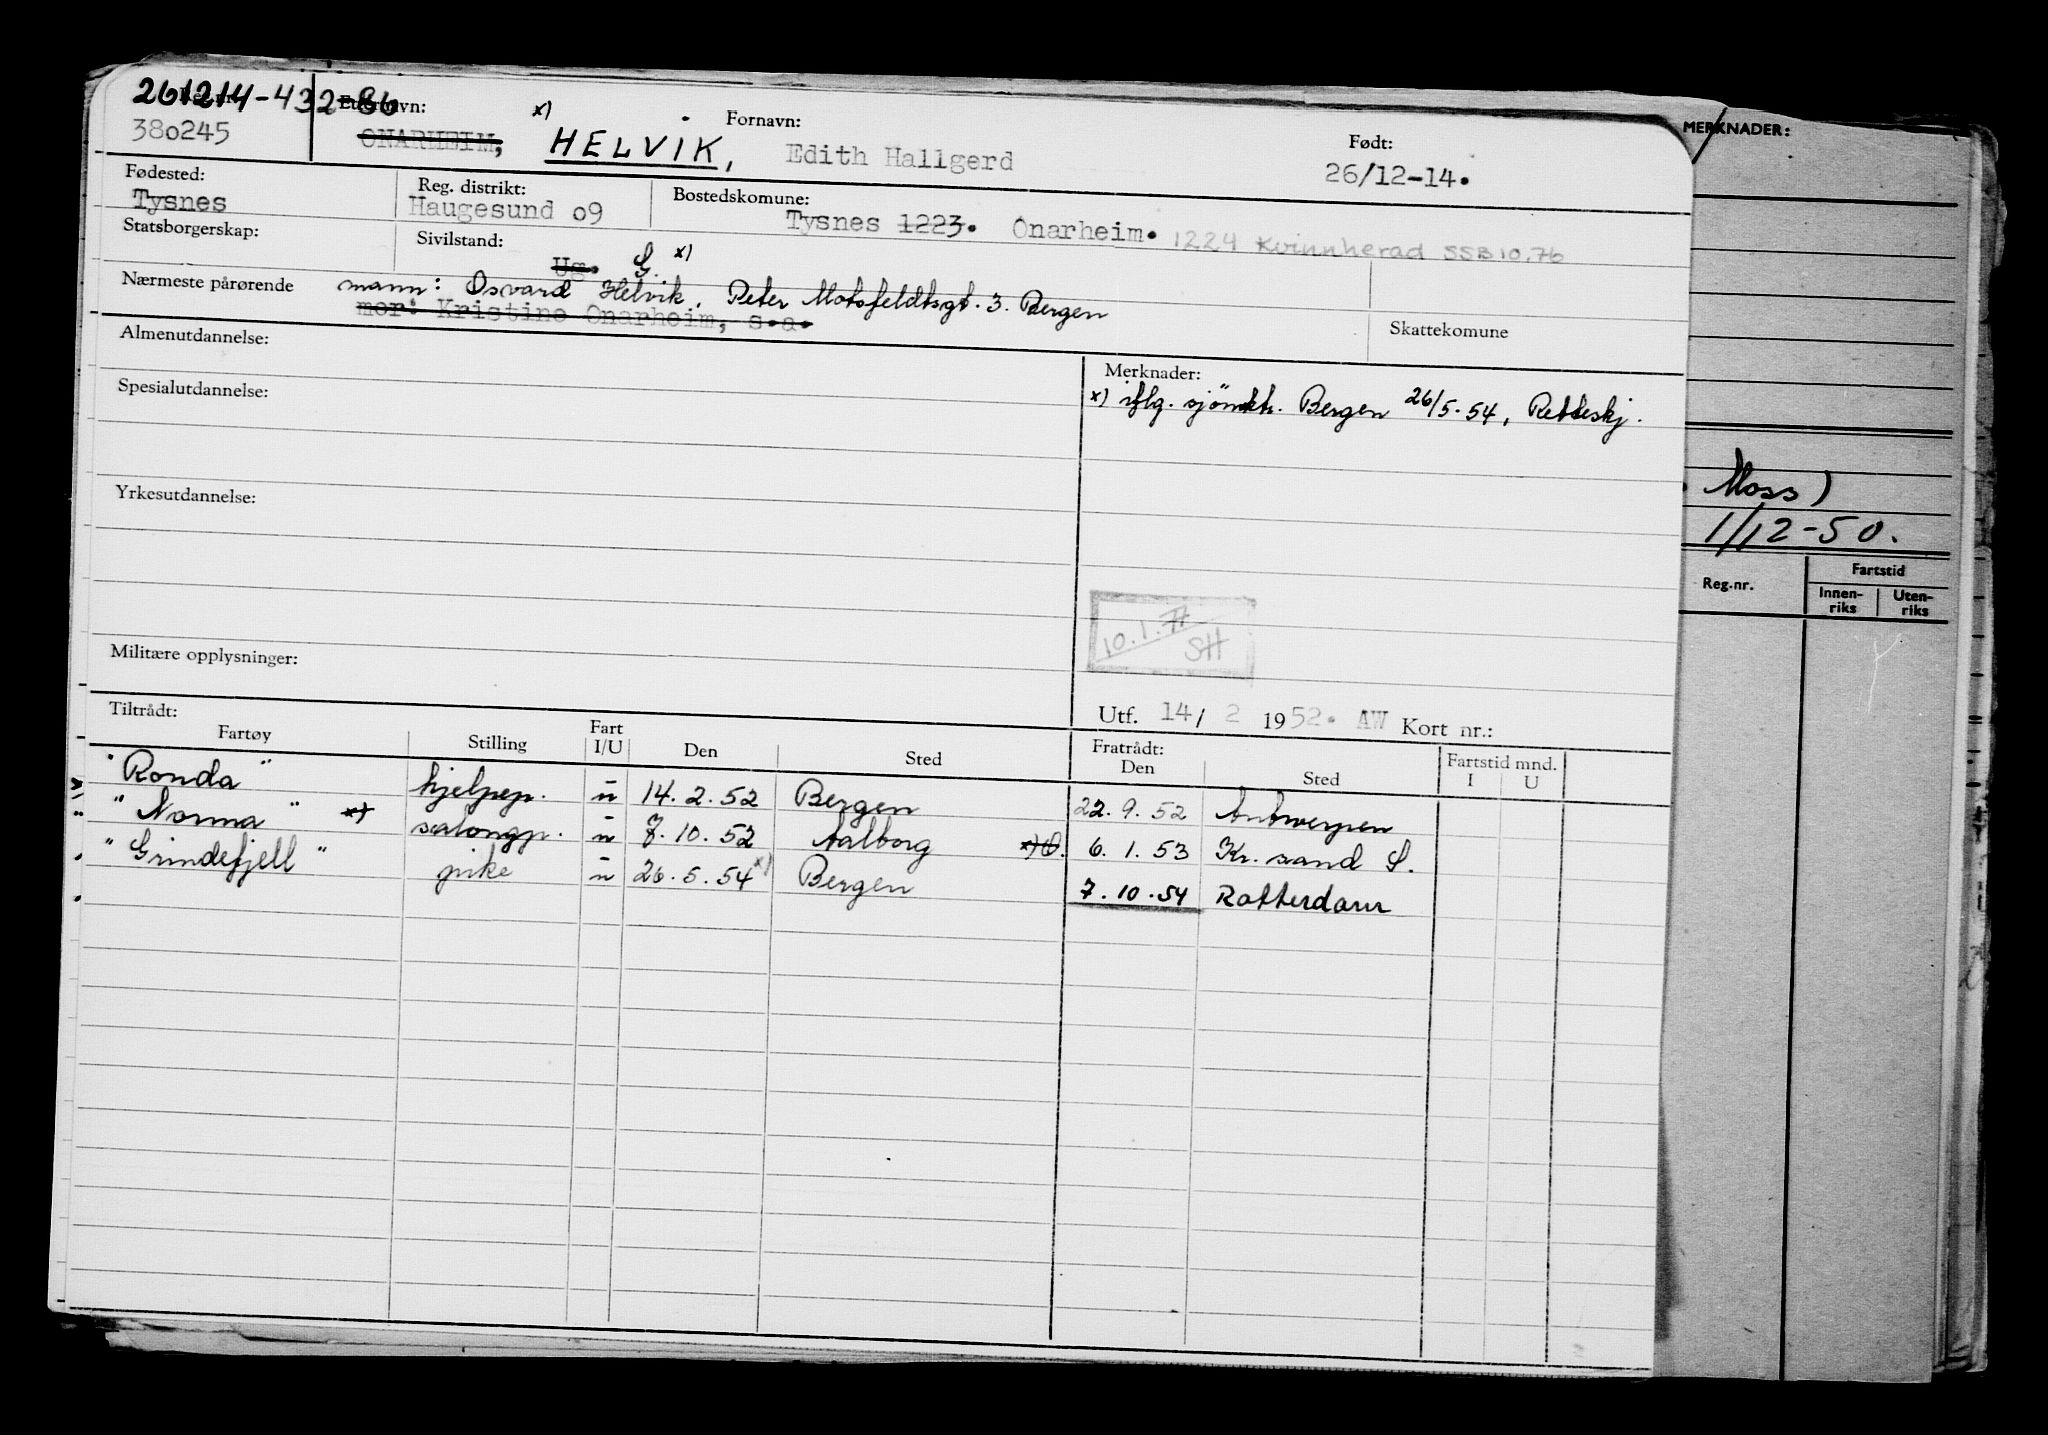 261214-432-86
Reg. nr. Etternavn: Fornavn: Født:
380245 ONARHEIM, x) HELVIK, Edith Hallgerd 26/12-14.
Fødested: Reg. distrikt: Bostedskomune:
Tysnes Haugesund 09 Tysnes 1223. Onarheim. 1224 Kvinnherad SSB 10.76
Statsborgerskap: Sivilstand:
Ug. G. x)
Nærmeste pårørende mann: Osvard Helvik, Peter Motsfeldtsgt. 3. Bergen
mor: Kristine Onarheim, s.a.
Skattekomune
Almenutdannelse: Merknader:
x) iflg. sjömktr. Bergen 26/5-54, Retteskj.
Spesialutdannelse:
Yrkesutdannelse:
10.1.77
SH
Militære opplysninger:
Utf. 14/ 2 1952. AW Kort nr.:
Tiltrådt: Fratrådt:
Fartøy Stilling Fart I/U Den Sted Den Sted Fartstid mnd. I U
"Ronda" hjelpep. u 14.2.52 Bergen 22.9.52 Antwerpen
"Norma" x) salongp. u 7.10.52 Aalborg x) O. 6.1.53 Kr. sand S.
"Grindefjell" pike u 26.5.54 x) Bergen 7.10.54 Rotterdam
MERKNADER:
Moss)
1/12-50.
Reg.nr. Fartstid
Innen-riks Uten-riks